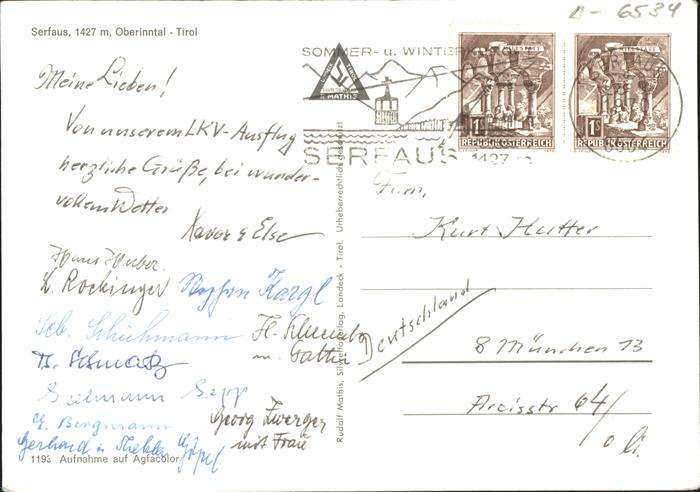 A - 6534
Serfaus, 1427 m, Oberinntal - Tirol
SOMMER- u. WINTER
R. MATHIS
SERFAUS 1427 m
1S
REPUBLIK ÖSTERREICH
1S
REPUBLIK ÖSTERREICH
Meine Lieben!
Von unserem LKV-Ausflug
herzliche Grüße, bei wunder-
vollem Wetter
Xaver & Else
Hans Huber
L. Rockinger
Stephan Kargl
Seb. Schuhmann
B. Schmatz
Seelmann Sepp
G. Bergmann
Georg Zwerger
mit Frau
Gerhard u.
Fam.
Kurt Hutter
8 München 13
Arcisstr 64/
Deutschland
Rudolf Mathis, Silvrettaverlag, Landeck - Tirol. Urheberrechtlich geschützt
1193 Aufnahme auf Agfacolor